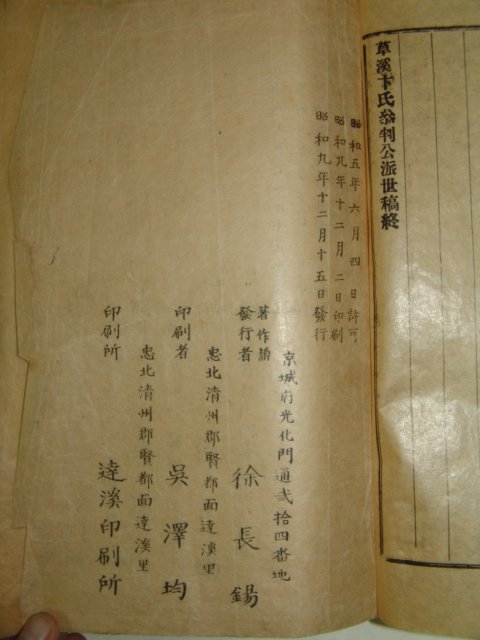 草溪卞氏叅判公派世稿終
昭和五年六月四日許可
昭和九年十二月二日印刷
昭和九年十二月十五日發行
京城府光化門通貳拾四番地
著作兼
發行者 徐長錫
忠北清州郡賢都面達溪里
印刷者 吳澤均
忠北清州郡賢都面達溪里
印刷所 達溪印刷所